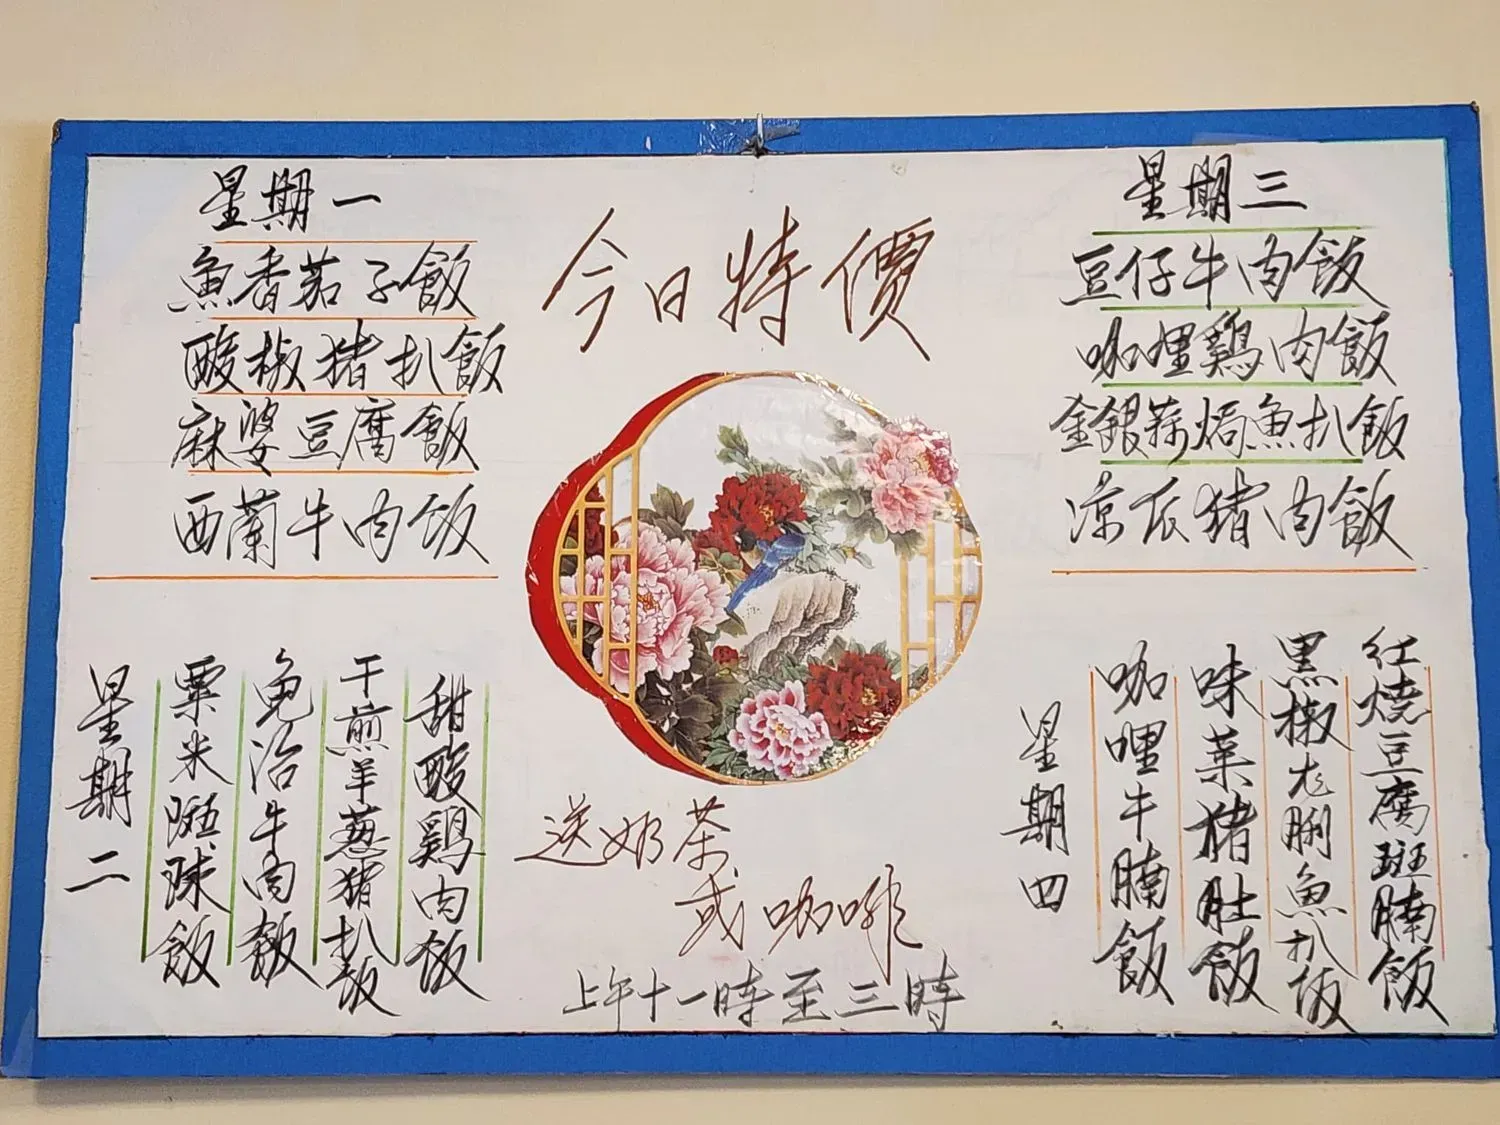 今日特價
星期一
魚香茄子飯
酸椒猪扒飯
麻婆豆腐飯
西蘭牛肉饭
星期二
粟米斑球飯
免治牛肉飯
干煎羊葱猪扒飯
甜酸鷄肉饭
星期三
豆仔牛肉飯
咖喱鷄肉飯
金銀蒜焗魚扒飯
凉瓜猪肉飯
星期四
咖哩牛腩飯
味菜猪肚飯
黑椒龙脷魚扒饭
红燒豆腐斑腩飯
送奶茶
或咖啡
上午十一時至三時